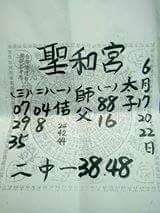 聖和宮
6月17 20 22日
太子
(一)
88
16
師父
(一)
佶
(二)
04
8
(三)
07
29
35
26
42
44
二中一38.48